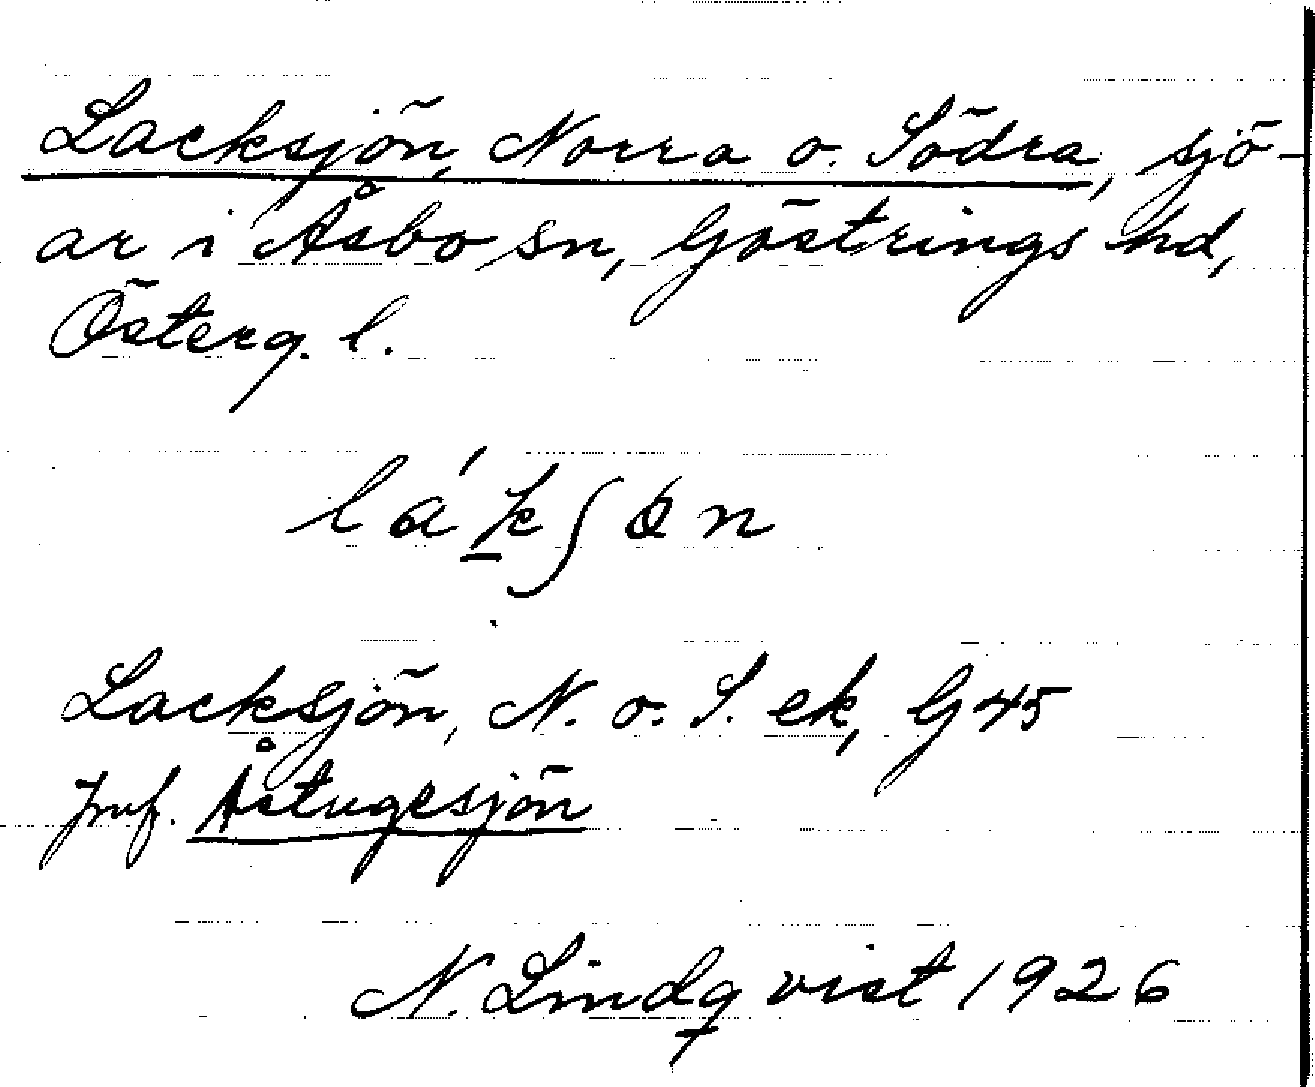 Lacksjön, Norra o. Södra, sjö-
ar i Åsbo sn, Göstrings hd,
Österg. l.
Lacksjön, N. o. S. ek, G 45
Jmf. Åstugesjön
N. Lindqvist 1926